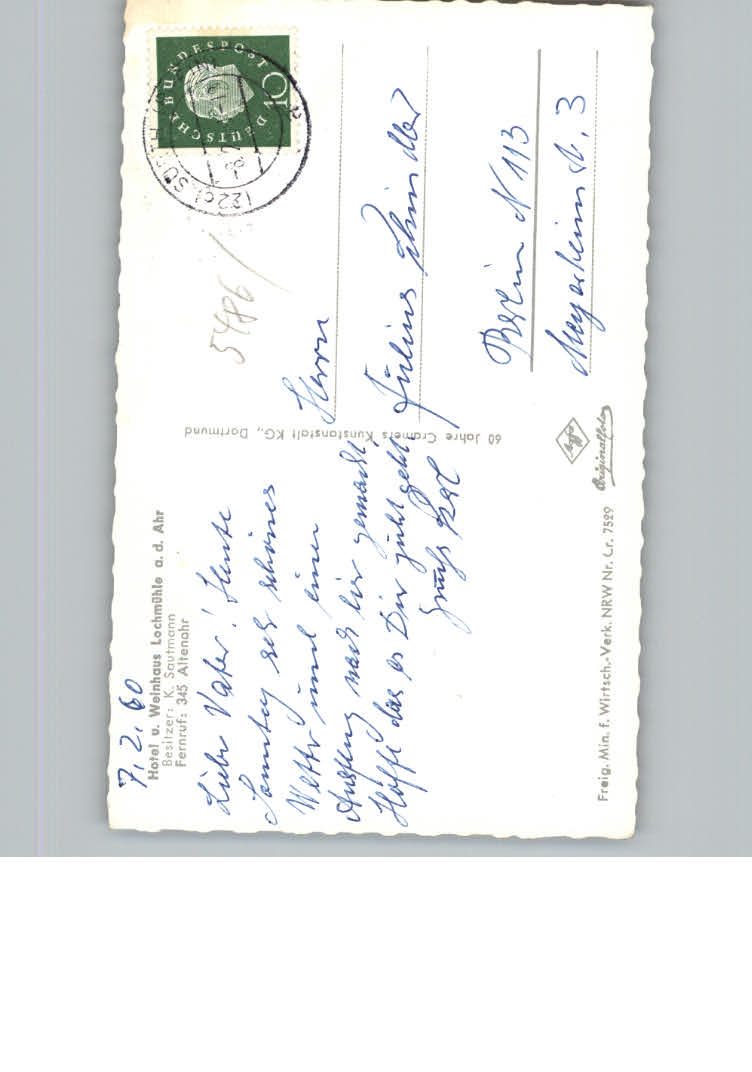 7.2.60
Hotel u. Weinhaus Lochmühle a. d. Ahr
Besitzer: K. Sautmann
Fernruf: 345 Altenahr
Liebe Vater! Heute
Sonntag sehr schönes
Wettr und einen
Ausflug nach hir gemacht,
Hoffe das es Dir guht geht
Gruß
60 Jahre Cramers Kunstanstalt KG., Dortmund
DEUTSCHE BUNDESPOST
10
(22c) SÜRTH
5486/
Herrn
Julius Schindler
Berlin N 113
Meyerheim st. 3
Agfa
Originalfoto
Freig. Min. f. Wirtsch.-Verk. NRW Nr. Lr. 7529